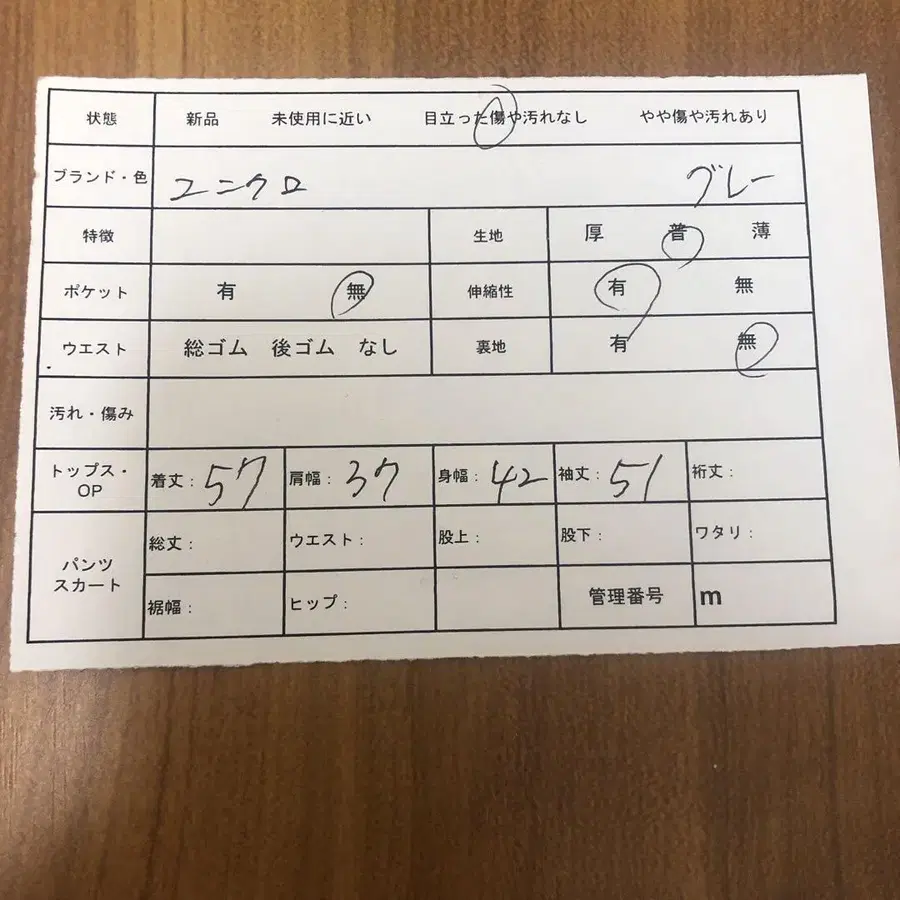 状態 新品 未使用に近い 目立った傷や汚れなし やや傷や汚れあり
ブランド・色 ユニクロ グレー
特徴 生地 厚 普 薄
ポケット 有 無 伸縮性 有 無
ウエスト 総ゴム 後ゴム なし 裏地 有 無
汚れ・傷み
トップス・OP 着丈: 57 肩幅: 37 身幅: 42 袖丈: 51 裄丈:
パンツ スカート 総丈: ウエスト: 股上: 股下: ワタリ:
裾幅: ヒップ: 管理番号 m